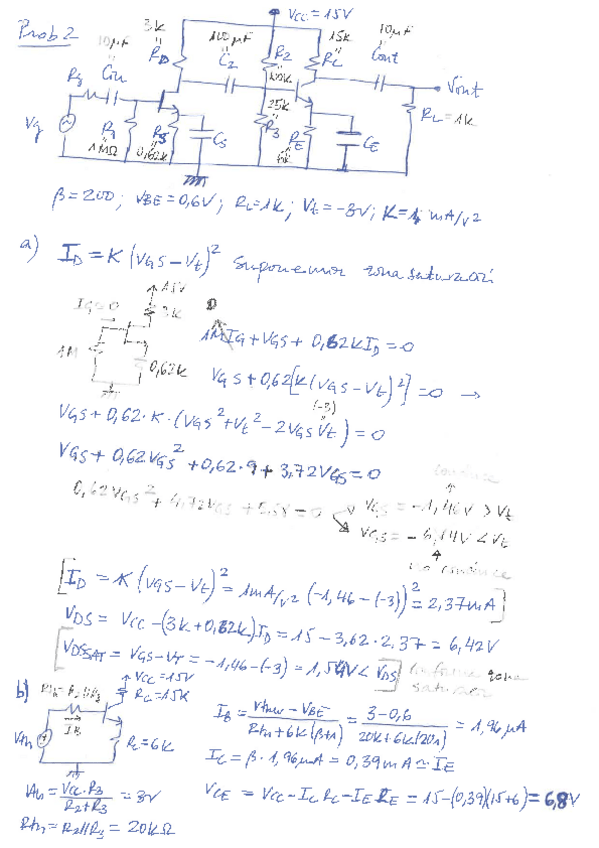 Prob 2
VCC = 15V
3k
RD
10µF
Cin
100µF
C2
R2
100k
15k
RC
10µF
Cout
Vout
Rg
Vg
RG
1MΩ
RS
0,62k
CS
25k
R3
RE
6k
CE
RL=1k
β=200; VBE=0,6V; RL=1k; Vt=-3V; K=1 mA/V2
a) ID = K (VGS-Vt)2 suponemos zona saturación
15V
IG=0
3k
1M
0,62k
1MIG+VGS+0,62kID=0
VGS+0,62[K(VGS-Vt)2]=0 →
(-3)
VGS+0,62·K·(VGS2+Vt2-2VGSVt)=0
VGS+0,62VGS2+0,62·9+3,72VGS=0
conduce
0,62VGS2+4,72VGS+5,58=0
VGS=-1,46V>Vt
VGS=-6,14V<Vt
no conduce
[ID = K (VGS-Vt)2 = 1mA/V2 (-1,46-(-3))2 = 2,37mA]
VDS = VCC-(3k+0,62k)ID = 15-3,62·2,37 = 6,42V
[VDSSAT = VGS-VT = -1,46-(-3) = 1,54V < VDS] zona saturación
b)
VCC=15V
RC=15k
IB
Vth
RE=6k
IB = Vthev-VBE / Rth+6k(β+1) = 3-0,6 / 20k+6k(201) = 1,96µA
IC = β·1,96µA = 0,39mA ≃ IE
Vth = VCC·R3 / R2+R3 = 3V
VCE = VCC-ICRC-IERE = 15-(0,39)(15+6) = 6,8V
Rth = R2||R3 = 20kΩ